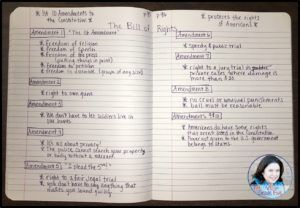 1st 10 Amendments to
the Constitution
protect the rights
of Americans!
The Bill of Rights
Amendment 1 "The 1st Amendment"
freedom of religion
freedom of speech
freedom of the press
(putting things in print)
freedom to petition
freedom to assemble (groups of any size)
Amendment 2
right to own guns
Amendment 3
We don't have to let soldiers live in
our homes
Amendment 4
It's all about privacy!
The police cannot search your property
or body without a warrant
Amendment 5 "I plead the 5th"
right to a fair legal trial
you don't have to say anything that
makes you sound guilty
Amendment 6
speedy & public trial
Amendment 7
right to a jury trial in
cases where damage is
more than $20
Amendment 8
no cruel or unusual punishments
bail must be reasonable
Amendments 9 &
Americans do have some rights
that aren't listed in the Constitution
Power not given to the U.S. government
belongs to states